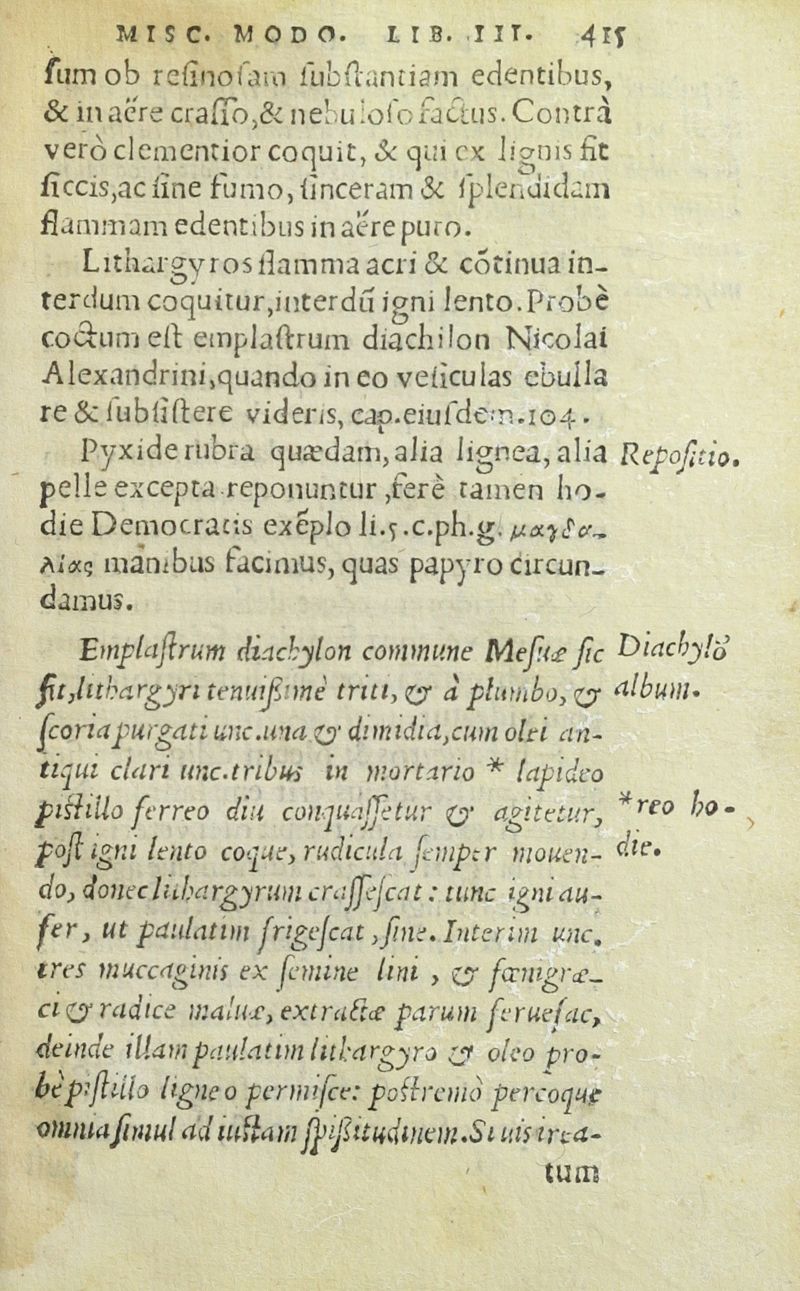 MISC. MODO. LIB. III. 415
ſum ob reſinoſam ſubſtantiam edentibus,
& in aëre craſſo,& nebuloſo factus. Contrà
verò clementior coquit, & qui ex lignis fit
ſiccis,ac ſine fumo, ſinceram & ſplendidam
flammam edentibus in aëre puro.
Lithargyros flamma acri & cõtinua in-
terdum coquitur,interdũ igni lento.Probè
coctum eſt emplaſtrum diachilon Nicolai
Alexandrini,quando in eo veſiculas ebulla
re & ſubſiſtere videris, cap.eiuſdem.104.
Pyxide rubra quædam, alia lignea, alia Repoſitio.
pelle excepta reponuntur ,ferè tamen ho-
die Democratis exẽplo li.5.c.ph.g. μαγδα-
λίας manibus facimus, quas papyro circun-
damus.
Emplaſtrum diachylon commune Meſuæ ſic Diachylõ
fit,lithargyri tenuißimè triti, & à plumbo, & album.
ſcoria purgati unc.una & dimidia,cum olei an-
tiqui clari unc.tribus in mortario * lapideo
piſtillo ferreo diu conquaſſetur & agitetur, *reo ho-
poſt igni lento coque, rudicula ſemper mouen- die.
do, donec lithargyrum craſſeſcat : tunc igni au-
fer, ut paulatim frigeſcat ,ſine. Interim unc.
tres muccaginis ex ſemine lini , & fœnigræ-
ci & radice maluæ, extractæ parum feruefac,
deinde illam paulatim lithargyro & oleo pro-
bè piſtillo ligneo permiſce: poſtremò percoque
omnia ſimul ad iuſtam ſpißitudinem.Si uis irea-
tum